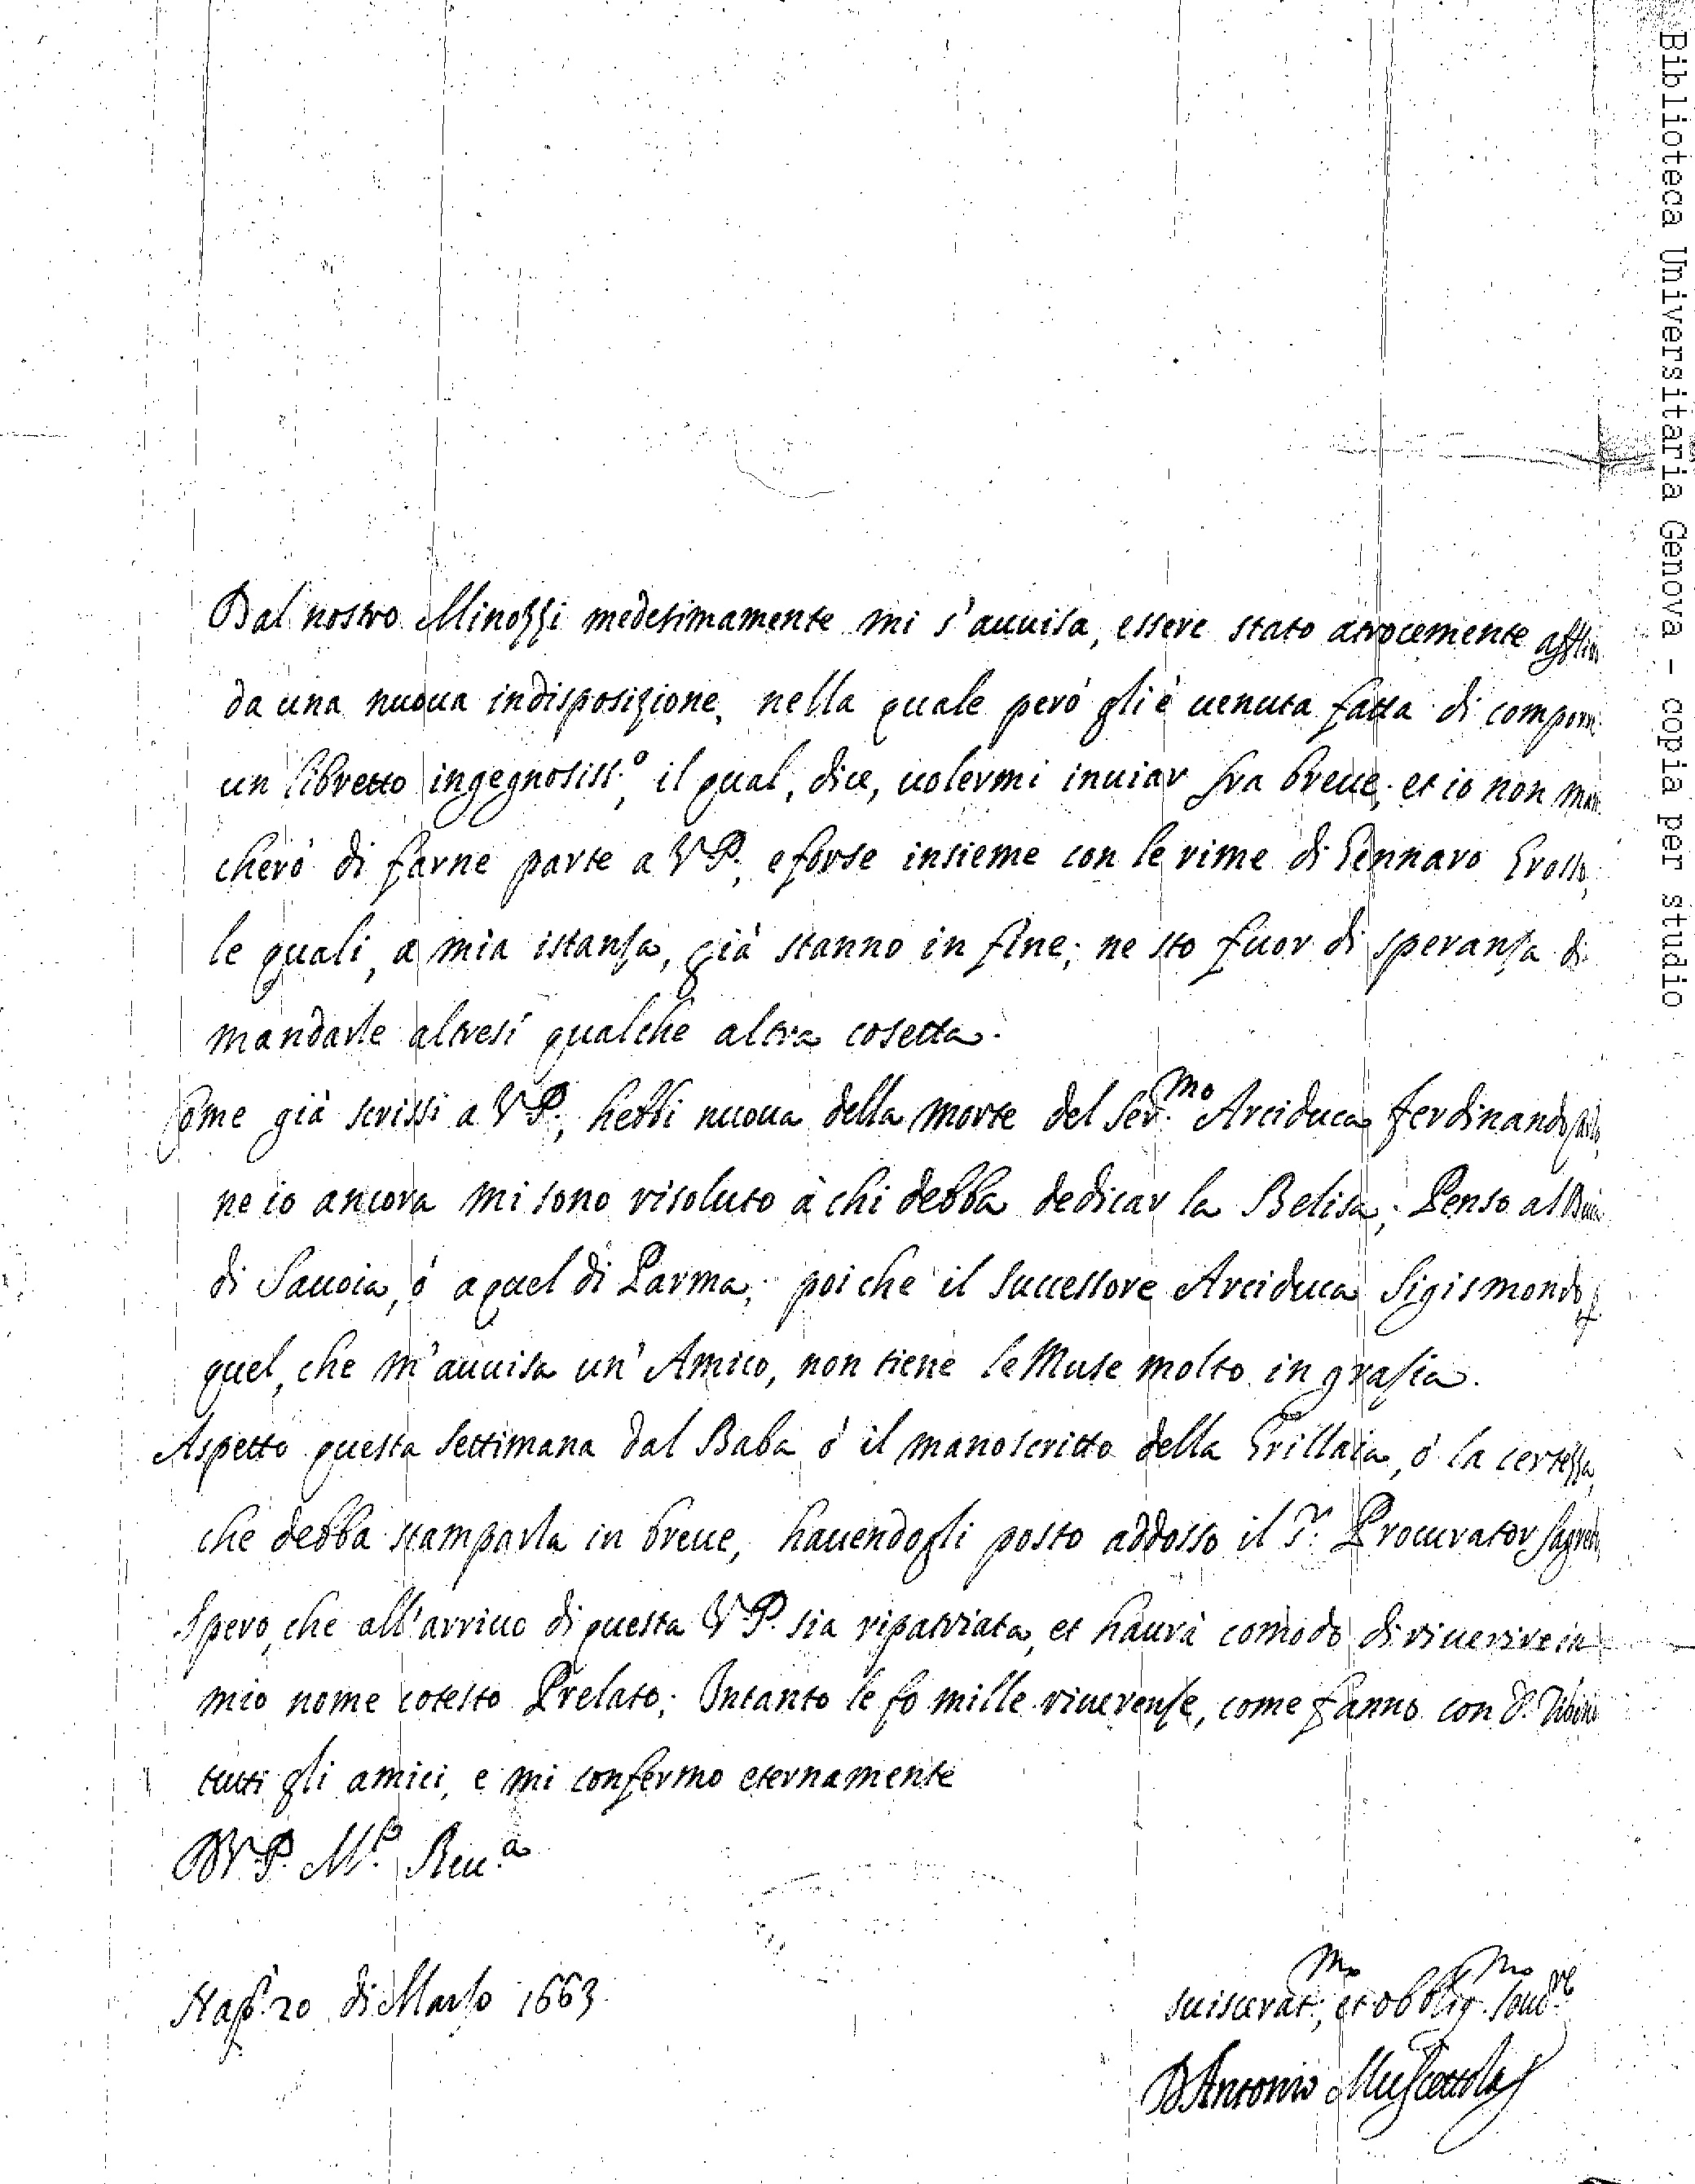 Dal nostro Minozzi medesimamente mi s'auuisa, essere stato atrocemente
da una nuoua indisposizione, nella quale però gli è uenuta fatta di
un libretto ingegnosiss.º, il qual, dice, uolermi inuiar fra breue; et io non man
cherò di farne parte a V P., e forse insieme con le rime di Gennaro Grosso,
le quali, a mia istanza, già stanno in fine; ne sto fuor di speranza di
mandarle altresì qualche altra cosetta.
Come già scrissi a V P., hebbi nuoua della morte del Ser.mo Arciduca Ferdinando
ne io ancora mi sono risoluto à chi debba dedicar la Belisa; Penso al Duca
di Sauoia, ò a quel di Parma; poi che il successore Arciduca Sigismondo,
quel, che m'auuisa un' Amico, non tiene le Muse molto in grazia.
Aspetto questa settimana dal Baba ò il manoscritto della Grillaia, ò la certezza,
che debba stamparla in breue, hauendogli posto addosso il Sr. Procurator Sagredo
Spero, che all'arriuo di questa V P. sia ripatriata, et haurà comodo di riuerire in
mio nome cotesto Prelato; Intanto le fo mille riuerenze, come fanno con D.
tutti gli amici, e mi confermo eternamente
D V. P. M.º Reu.a
Nap. 20 di Marzo 1663.
suiscerat.mo, et obblig.mo
D Antonio Muscettola
Biblioteca Universitaria Genova - copia per studio